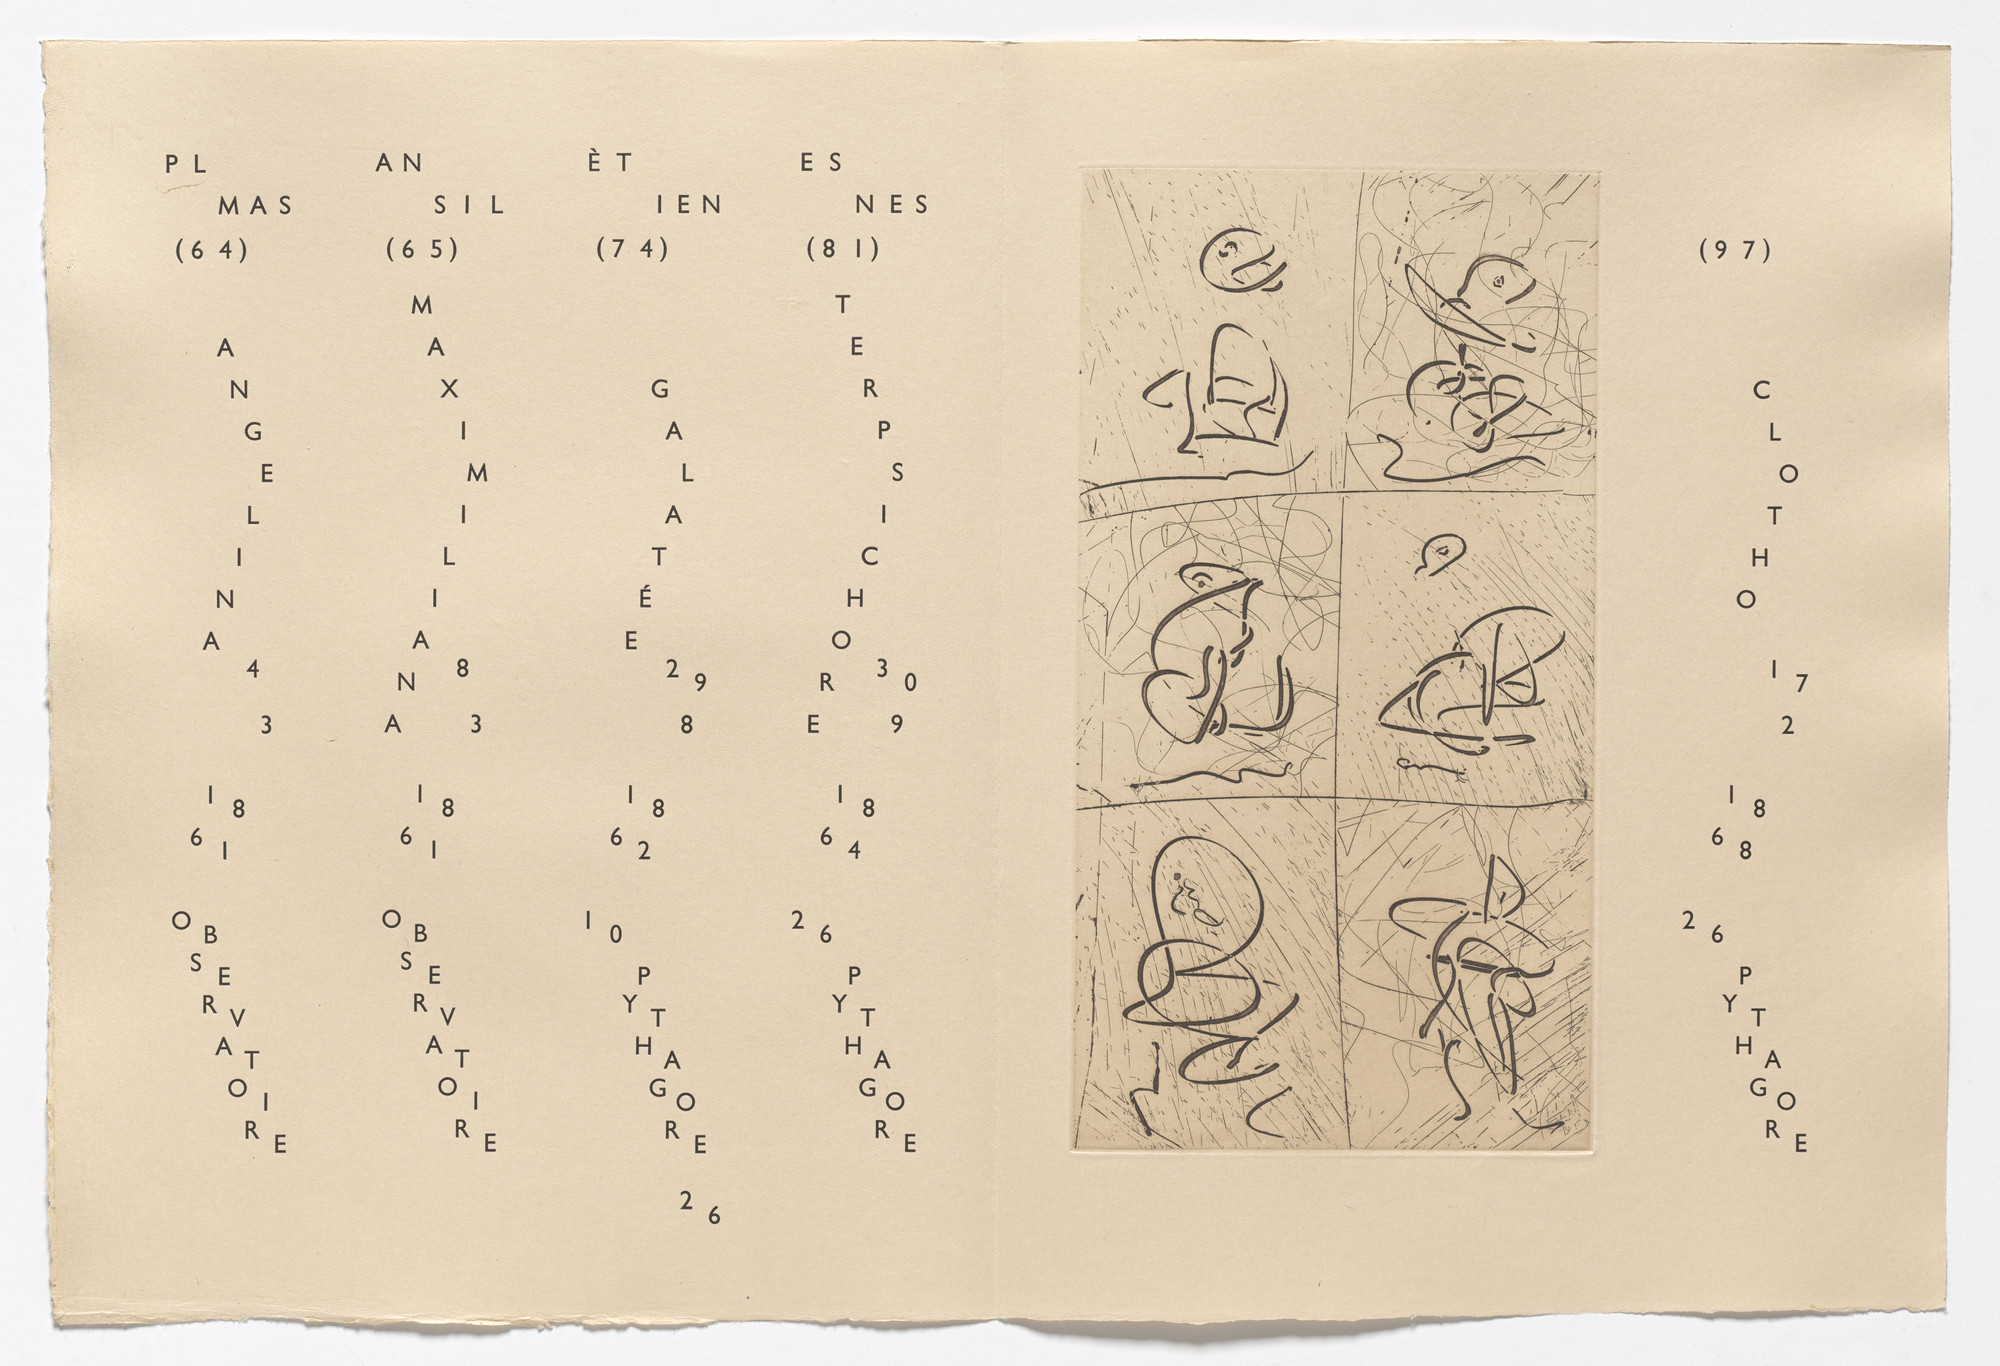 PL AN ÈT ES
MAS SIL IEN NES
(64) (65) (74) (81) (97)
ANGELINA
43
1861
OBSERVATOIRE
MAXIMILIANA
83
1861
OBSERVATOIRE
GALATÉE
298
1862
10
PYTHAGORE
26
TERPSICHORE
309
1864
26
PYTHAGORE
CLOTHO
172
1868
26
PYTHAGORE